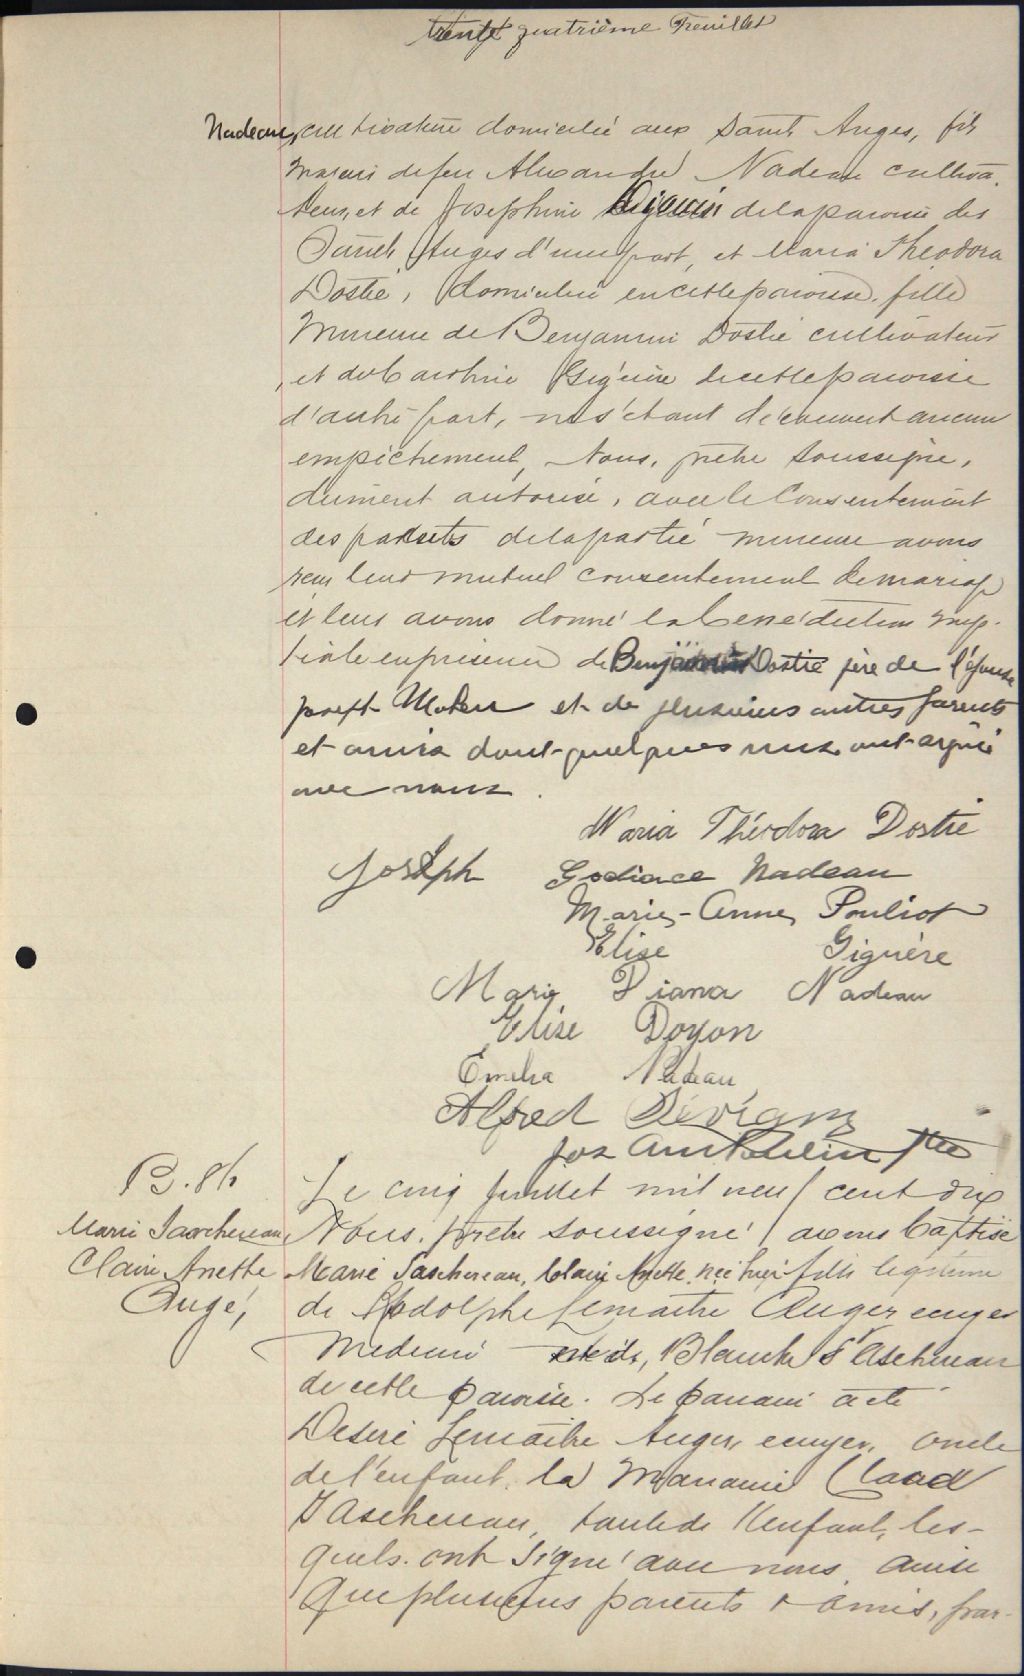 trente quatrième Feuillet
Nadeau, cultivateur domicilié aux Saints Anges, fils
majeur de feu Alexandre Nadeau cultiva-
teur, et de Josephine de la paroisse des
Saints Anges d'une part, et Maria Theodora
Dostie, domiciliée en cette paroisse, fille
mineure de Benjamin Dostie cultivateur
, et de Caroline Giguère de cette paroisse
d'autre part, ne s'étant découvert aucun
empêchement, Nous, prêtre soussigné,
dûment autorisé, avec le consentement
des parents de la partie mineure avons
reçu leur mutuel consentement de mariage
et leur avons donné la bénédiction nup-
tiale en présence de Benjamin Dostie père de l'épouse
et de plusieurs autres parents
et amis dont quelques uns ont signé
avec nous.
Maria Théodora Dostie
Joseph Godiace Nadeau
Marie-Anne Pouliot
Elise Giguère
Marie Diana Nadeau
Elise Doyon
Emelia Nadeau
Alfred
Jos Ptre
B. 86
Marie Taschereau
Claire Anette
Augé,
Le cinq juillet mil neuf cent dix
Nous, prêtre soussigné, avons baptisé
Marie Taschereau, Claire Anette, née hier fille légitime
de Rodolphe Lemaitre Auger ecuyer
medecin et de, Blanche Taschereau
de cette paroisse. Le parrain a été
Desiré Lemaître Auger, ecuyer, oncle
de l'enfant, la marraine Claud
Taschereau, tante de l'enfant, les-
quels ont signé avec nous ainsi
que plusieurs parents & amis, par-